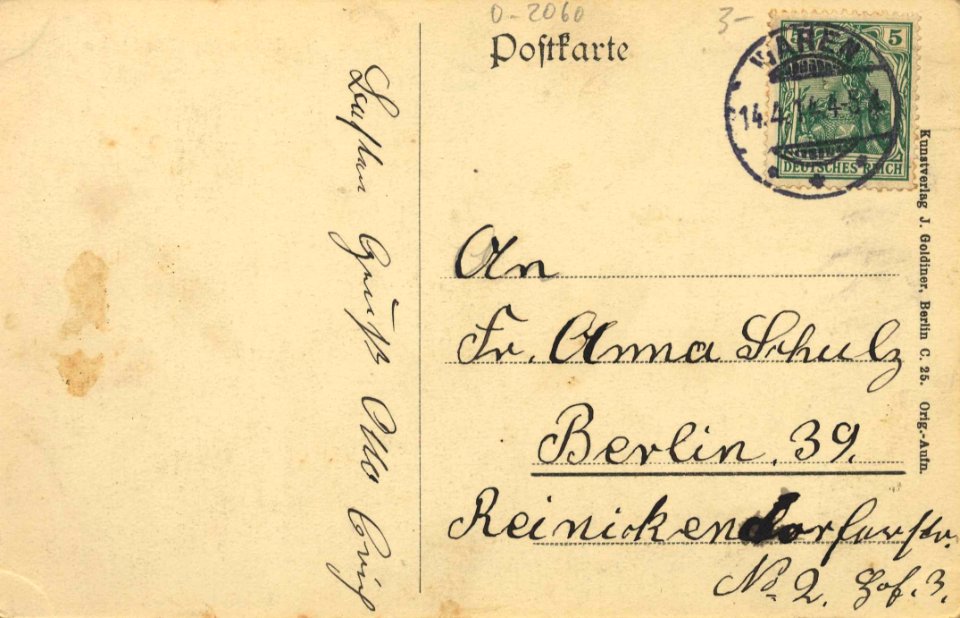 0-2060
3-
Postkarte
WAREN
14.4.14.4-5
5
DEUTSCHES REICH
Gruß Otto
An
Fr. Anna Schulz
Berlin. 39.
Reinickendorferstr.
No 2. Hof. 3.
Kunstverlag J. Goldiner, Berlin C. 25. Orig.-Aufn.